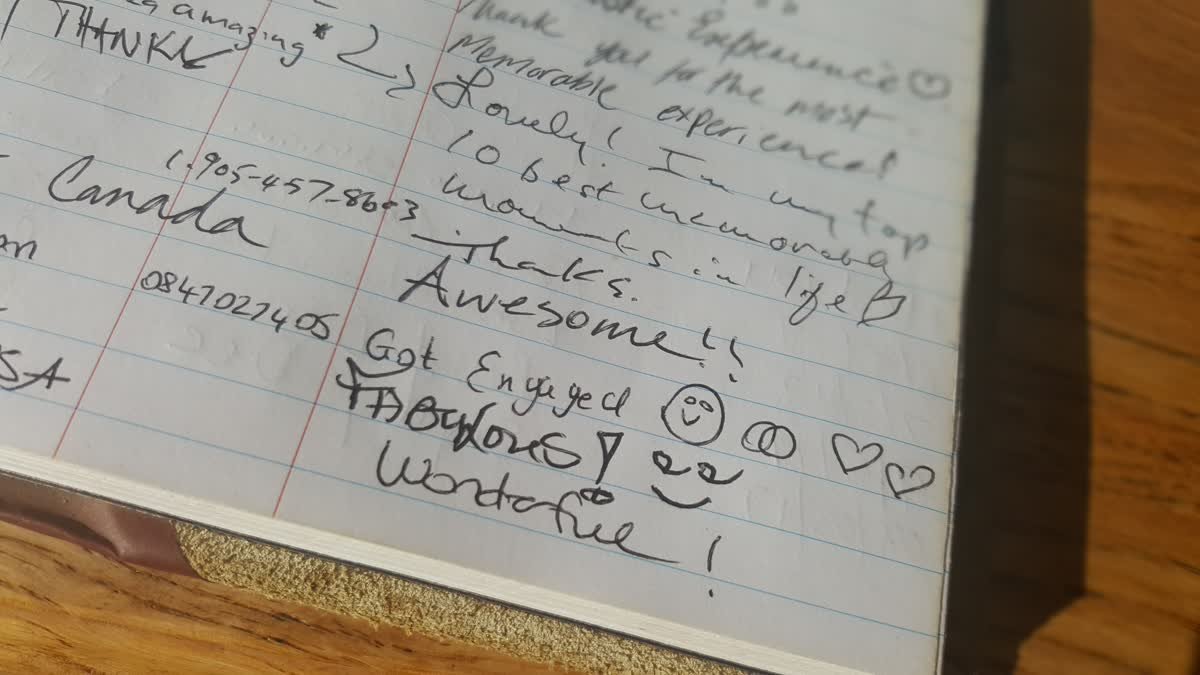 amazing *
THANK
Experience
Thank you for the most
Memorable experience!
Lovely! In my top
10 best memorable
moments in life
Thanks.
1.905-457-86
Canada
Awesome!!
0847027405
Got Engaged
SA
Wonderful!